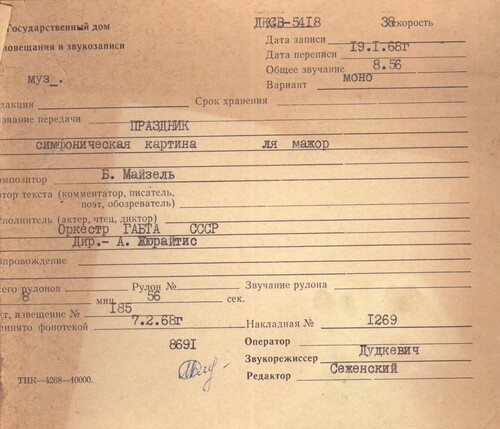 Государственный дом
ДКСВ-5418 38 скорость
новещания и звукозаписи
Дата записи
Дата переписи 19.I.68г
Общее звучание 8.56
муз_.
Вариант моно
дакция Срок хранения
звание передачи
ПРАЗДНИК
симфоническая картина ля мажор
мпозитор Б. Майзель
тор текста (комментатор, писатель,
поэт, обозреватель)
сполнитель (актер, чтец, диктор)
Оркестр ГАБТА СССР
Дир.- А. Жюрайтис
провождение
его рулонов Рулон № Звучание рулона
8 мин 56 сек.
кт, извещение № 185
инято фонотекой 7.2.68г Накладная № I269
8691
Оператор
Звукорежиссер Дудкевич
Редактор Сеженский
ТИК—4268—10000.